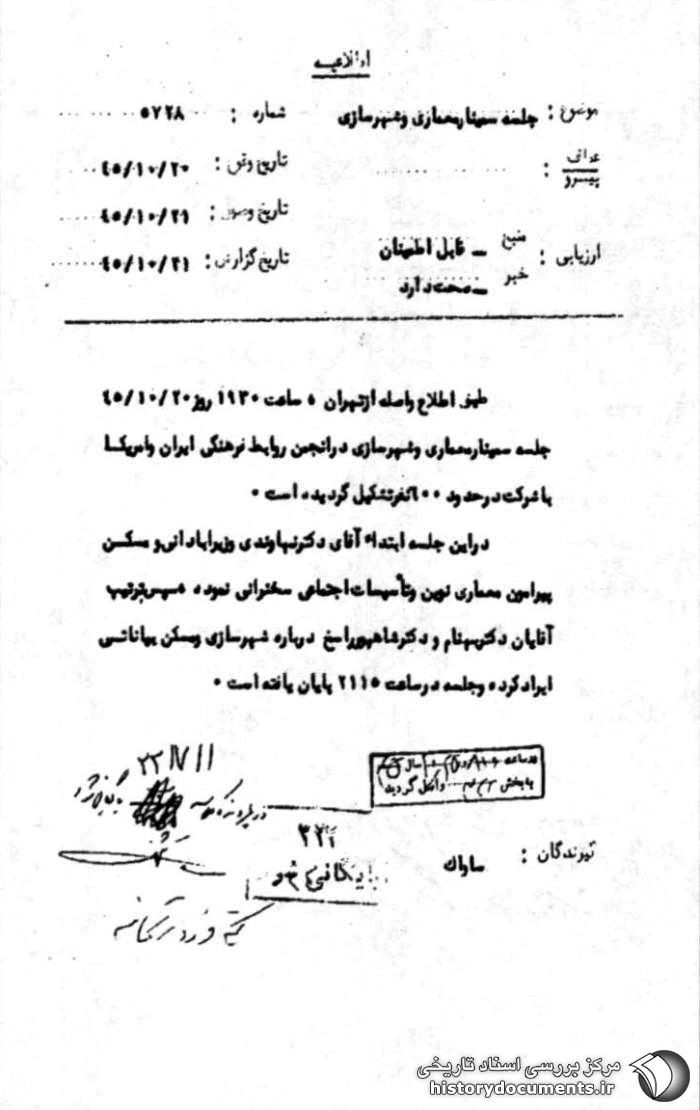 اطلاعیه
موضوع : جلسه سمینار معماری و شهرسازی
شماره : ۵۷۲۸
عطف
پیرو :
تاریخ وقوع : ۴۵/۱۰/۲۰
تاریخ وصول : ۴۵/۱۰/۲۱
ارزیابی : منبع ــ قابل اطمینان
خبر ــ صحت دارد
تاریخ گزارش : ۴۵/۱۰/۲۱
طبق اطلاع واصله از تهران ، ساعت ۱۹۳۰ روز ۴۵/۱۰/۲۰
جلسه سمینار معماری و شهرسازی در انجمن روابط فرهنگی ایران و امریکا
با شرکت در حدود ۱۰۰ نفر تشکیل گردیده است ۰
در این جلسه ابتداء آقای دکتر نهاوندی وزیر آبادانی و مسکن
پیرامون معماری نوین و تأسیسات اجتماعی سخنرانی نموده ، سپس بترتیب
آقایان دکتر بهنام و دکتر شاهپور راسخ درباره شهرسازی و مسکن بیاناتی
ایراد کرده و جلسه در ساعت ۲۱۱۵ پایان یافته است ۰
در ساعت سال
به بخش واصل گردید
۳۲۱
بایگانی شود
گیرندگان : ساواک
مرکز بررسی اسناد تاریخی
historydocuments.ir